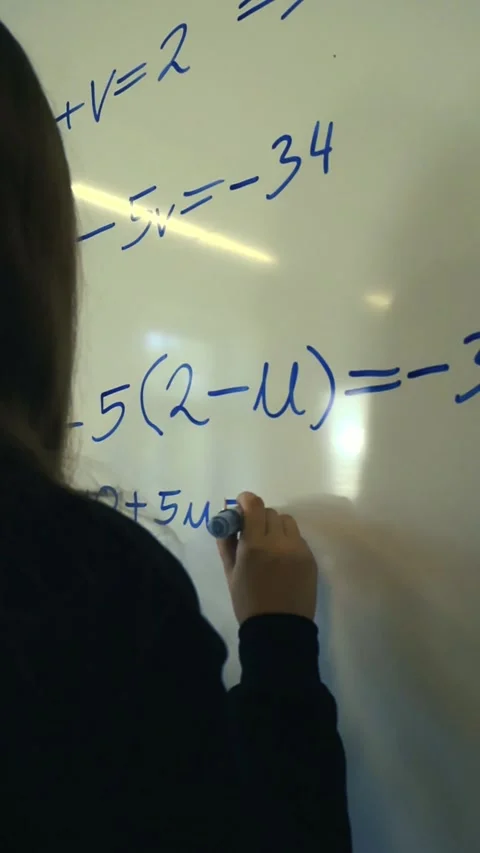 =
+v=2
-5v=-34
-5(2-u)=-3
0+5u=